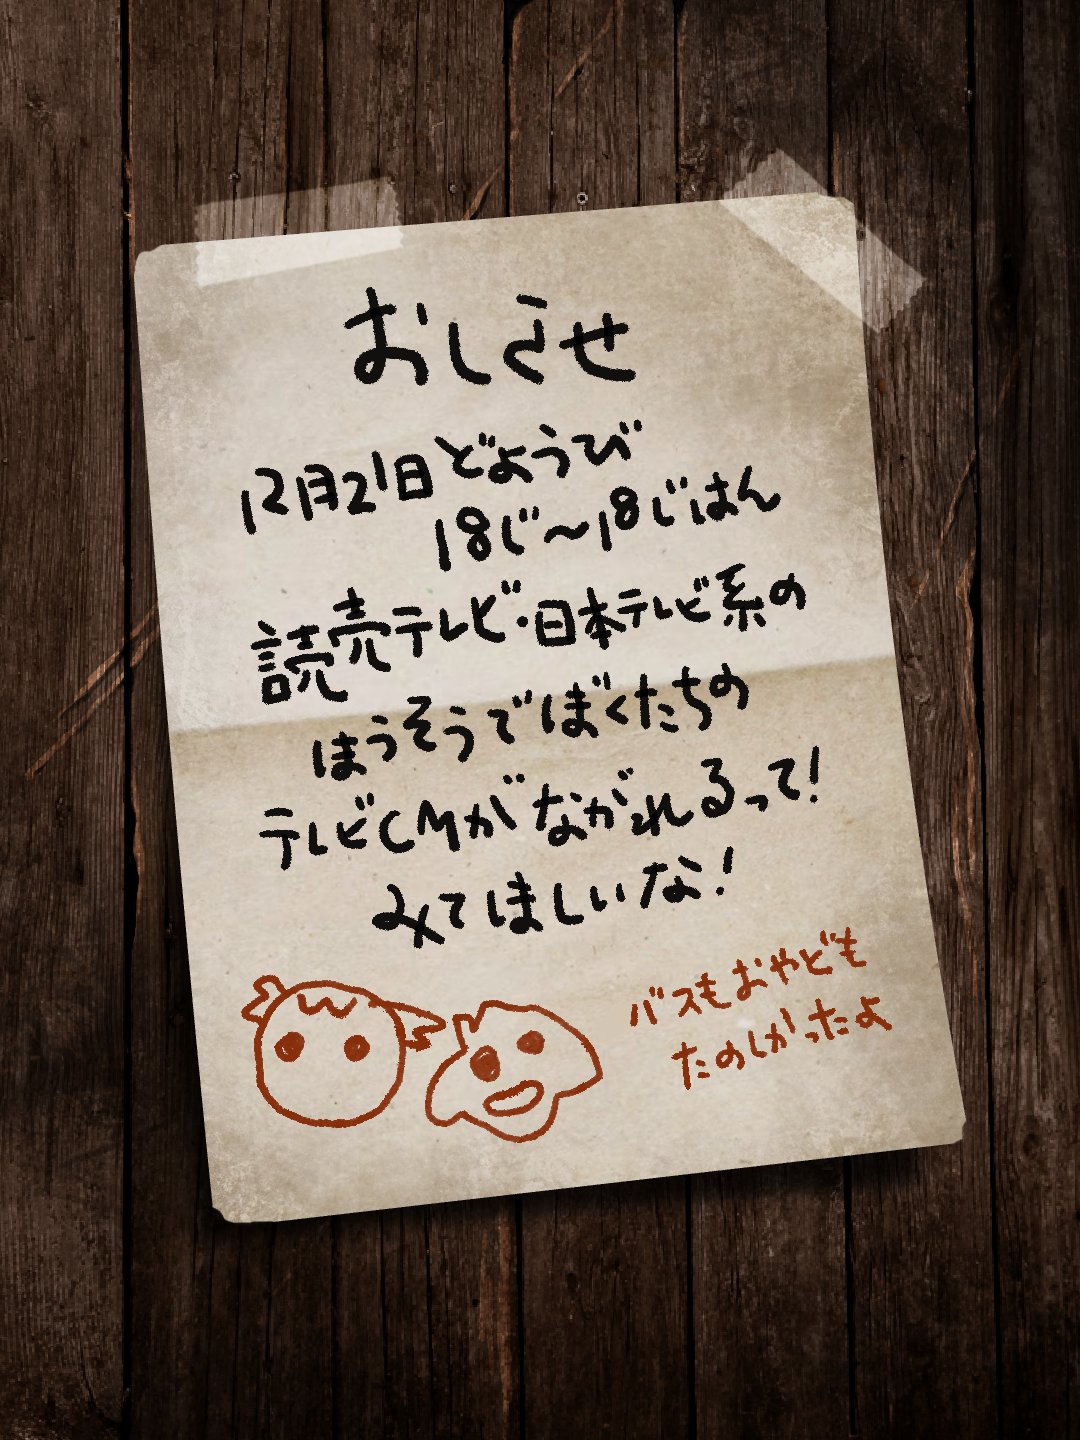 おしらせ
12月21日どようび
18じ～18じはん
読売テレビ・日本テレビ系の
ほうそうでぼくたちの
テレビCMがながれるって!
みてほしいな!
バスもおやども
たのしかったよ